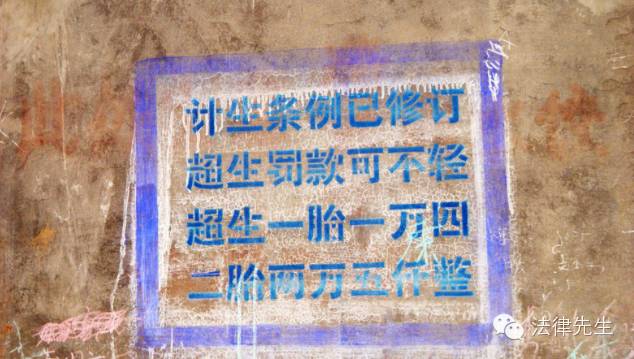 计生条例已修订
超生罚款可不轻
超生一胎一万四
二胎两万五仟整
法律先生